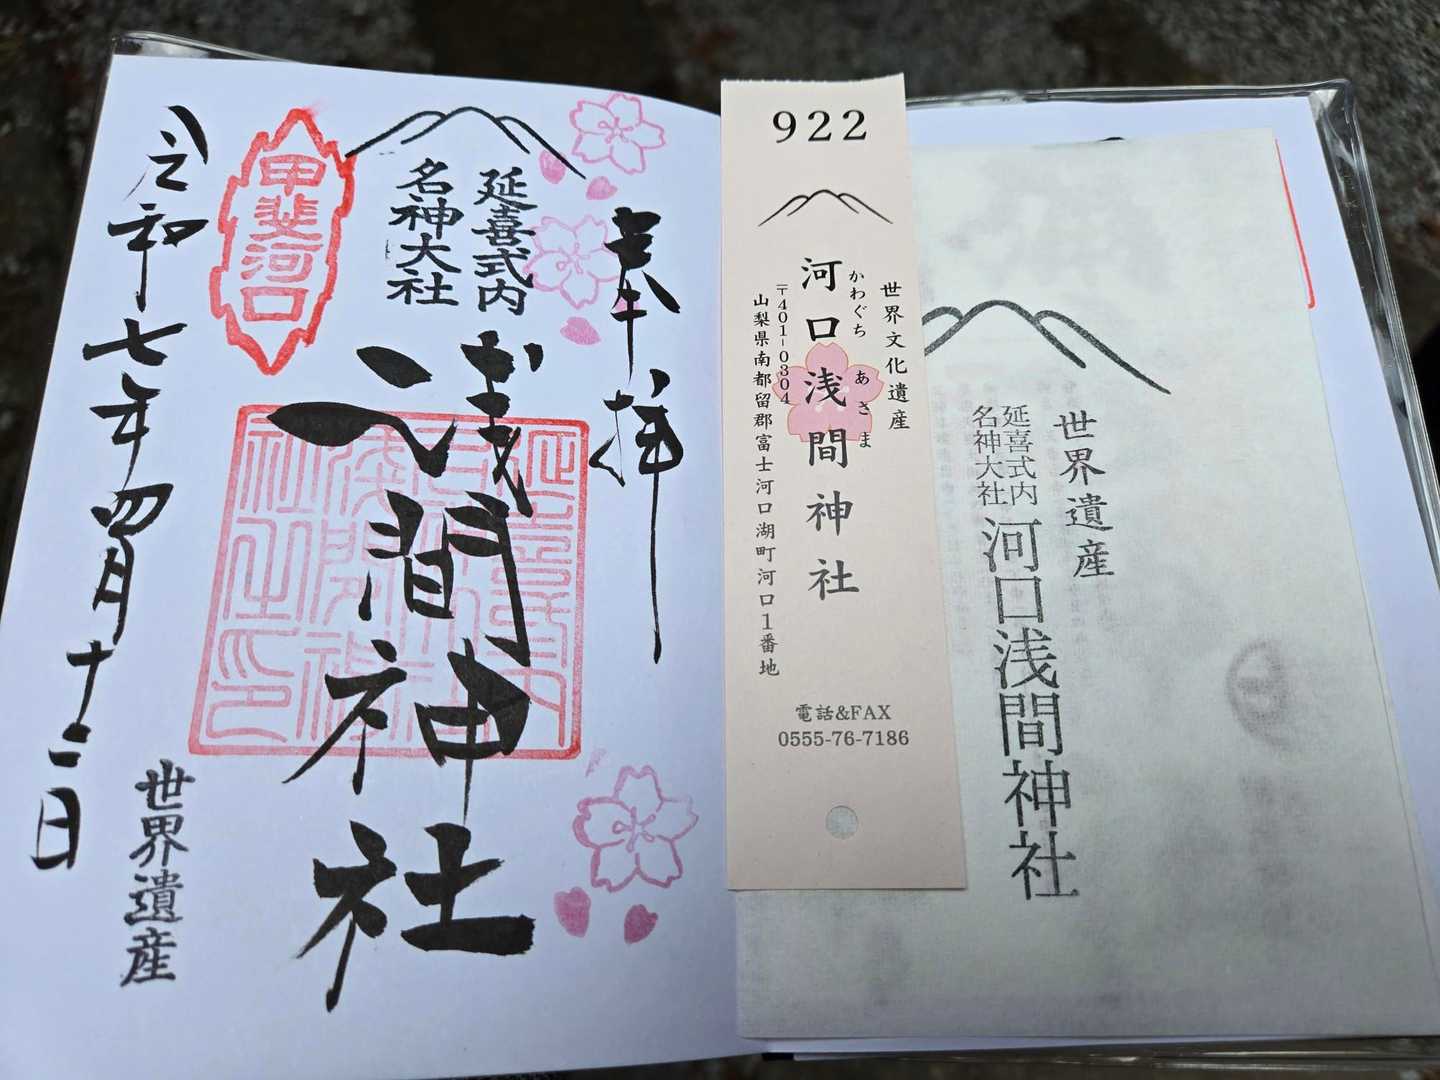 奉拝
延喜式内
名神大社
浅間神社
甲斐河口
令和七年四月十二日
世界遺産
922
世界文化遺産
かわぐち あさま
河口浅間神社
〒401-0304
山梨県南都留郡富士河口湖町河口1番地
電話&FAX
0555-76-7186
世界遺産
延喜式内
名神大社
河口浅間神社